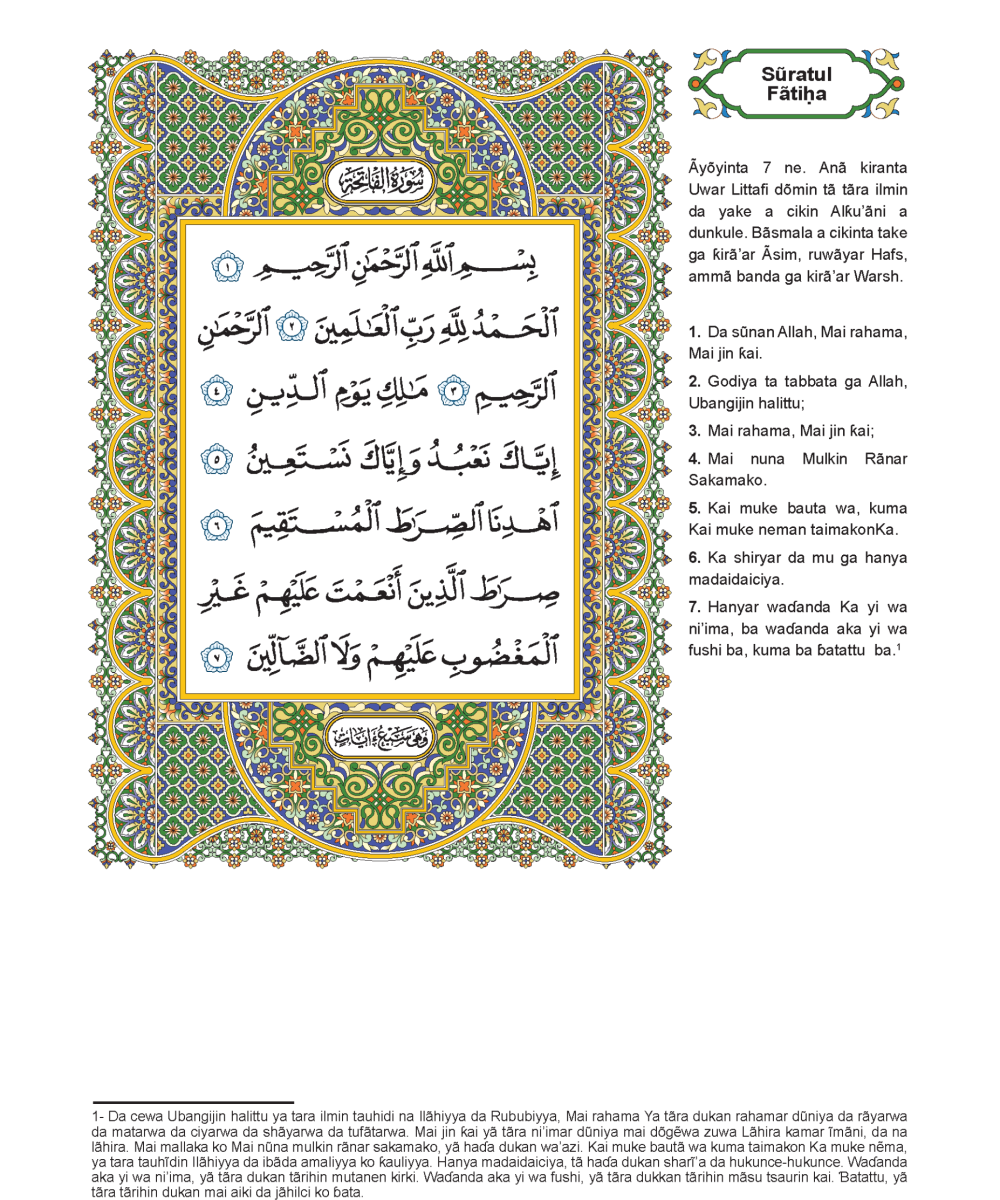 سُورَةُ الفَاتِحَةِ
بِسْمِ ٱللَّهِ ٱلرَّحْمَٰنِ ٱلرَّحِيمِ ١
ٱلْحَمْدُ لِلَّهِ رَبِّ ٱلْعَٰلَمِينَ ٢ ٱلرَّحْمَٰنِ
ٱلرَّحِيمِ ٣ مَٰلِكِ يَوْمِ ٱلدِّينِ ٤
إِيَّاكَ نَعْبُدُ وَإِيَّاكَ نَسْتَعِينُ ٥
ٱهْدِنَا ٱلصِّرَٰطَ ٱلْمُسْتَقِيمَ ٦
صِرَٰطَ ٱلَّذِينَ أَنْعَمْتَ عَلَيْهِمْ غَيْرِ
ٱلْمَغْضُوبِ عَلَيْهِمْ وَلَا ٱلضَّآلِّينَ ٧
وَهِيَ سَبْعُ ءَايَاتٍ
Sũratul
Fãtiḥa
Ãyõyinta 7 ne. Anã kiranta
Uwar Littafi dõmin tã tãra ilmin
da yake a cikin Alƙu’ãni a
dunkule. Bãsmala a cikinta take
ga ƙirã’ar Ãsim, ruwãyar Hafs,
ammã banda ga kirã’ar Warsh.
1. Da sũnan Allah, Mai rahama,
Mai jin ƙai.
2. Godiya ta tabbata ga Allah,
Ubangijin halittu;
3. Mai rahama, Mai jin ƙai;
4. Mai nuna Mulkin Rãnar
Sakamako.
5. Kai muke bauta wa, kuma
Kai muke neman taimakonKa.
6. Ka shiryar da mu ga hanya
madaidaiciya.
7. Hanyar waɗanda Ka yi wa
ni’ima, ba waɗanda aka yi wa
fushi ba, kuma ba ɓatattu ba.¹
1- Da cewa Ubangijin halittu ya tara ilmin tauhidi na Ilãhiyya da Rububiyya, Mai rahama Ya tãra dukan rahamar dũniya da rãyarwa
da matarwa da ciyarwa da shãyarwa da tufãtarwa. Mai jin ƙai yã tãra ni’imar dũniya mai dõgẽwa zuwa Lãhira kamar ĩmãni, da na
lãhira. Mai mallaka ko Mai nũna mulkin rãnar sakamako, yã haɗa dukan wa’azi. Kai muke bautã wa kuma taimakon Ka muke nẽma,
ya tara tauhĩdin Ilãhiyya da ibãda amaliyya ko ƙauliyya. Hanya madaidaiciya, tã haɗa dukan sharĩ’a da hukunce-hukunce. Waɗanda
aka yi wa ni’ima, yã tãra dukan tãrihin mutanen kirki. Waɗanda aka yi wa fushi, yã tãra dukkan tãrihin mãsu tsaurin kai. Ɓatattu, yã
tãra tãrihin dukan mai aiki da jãhilci ko ɓata.